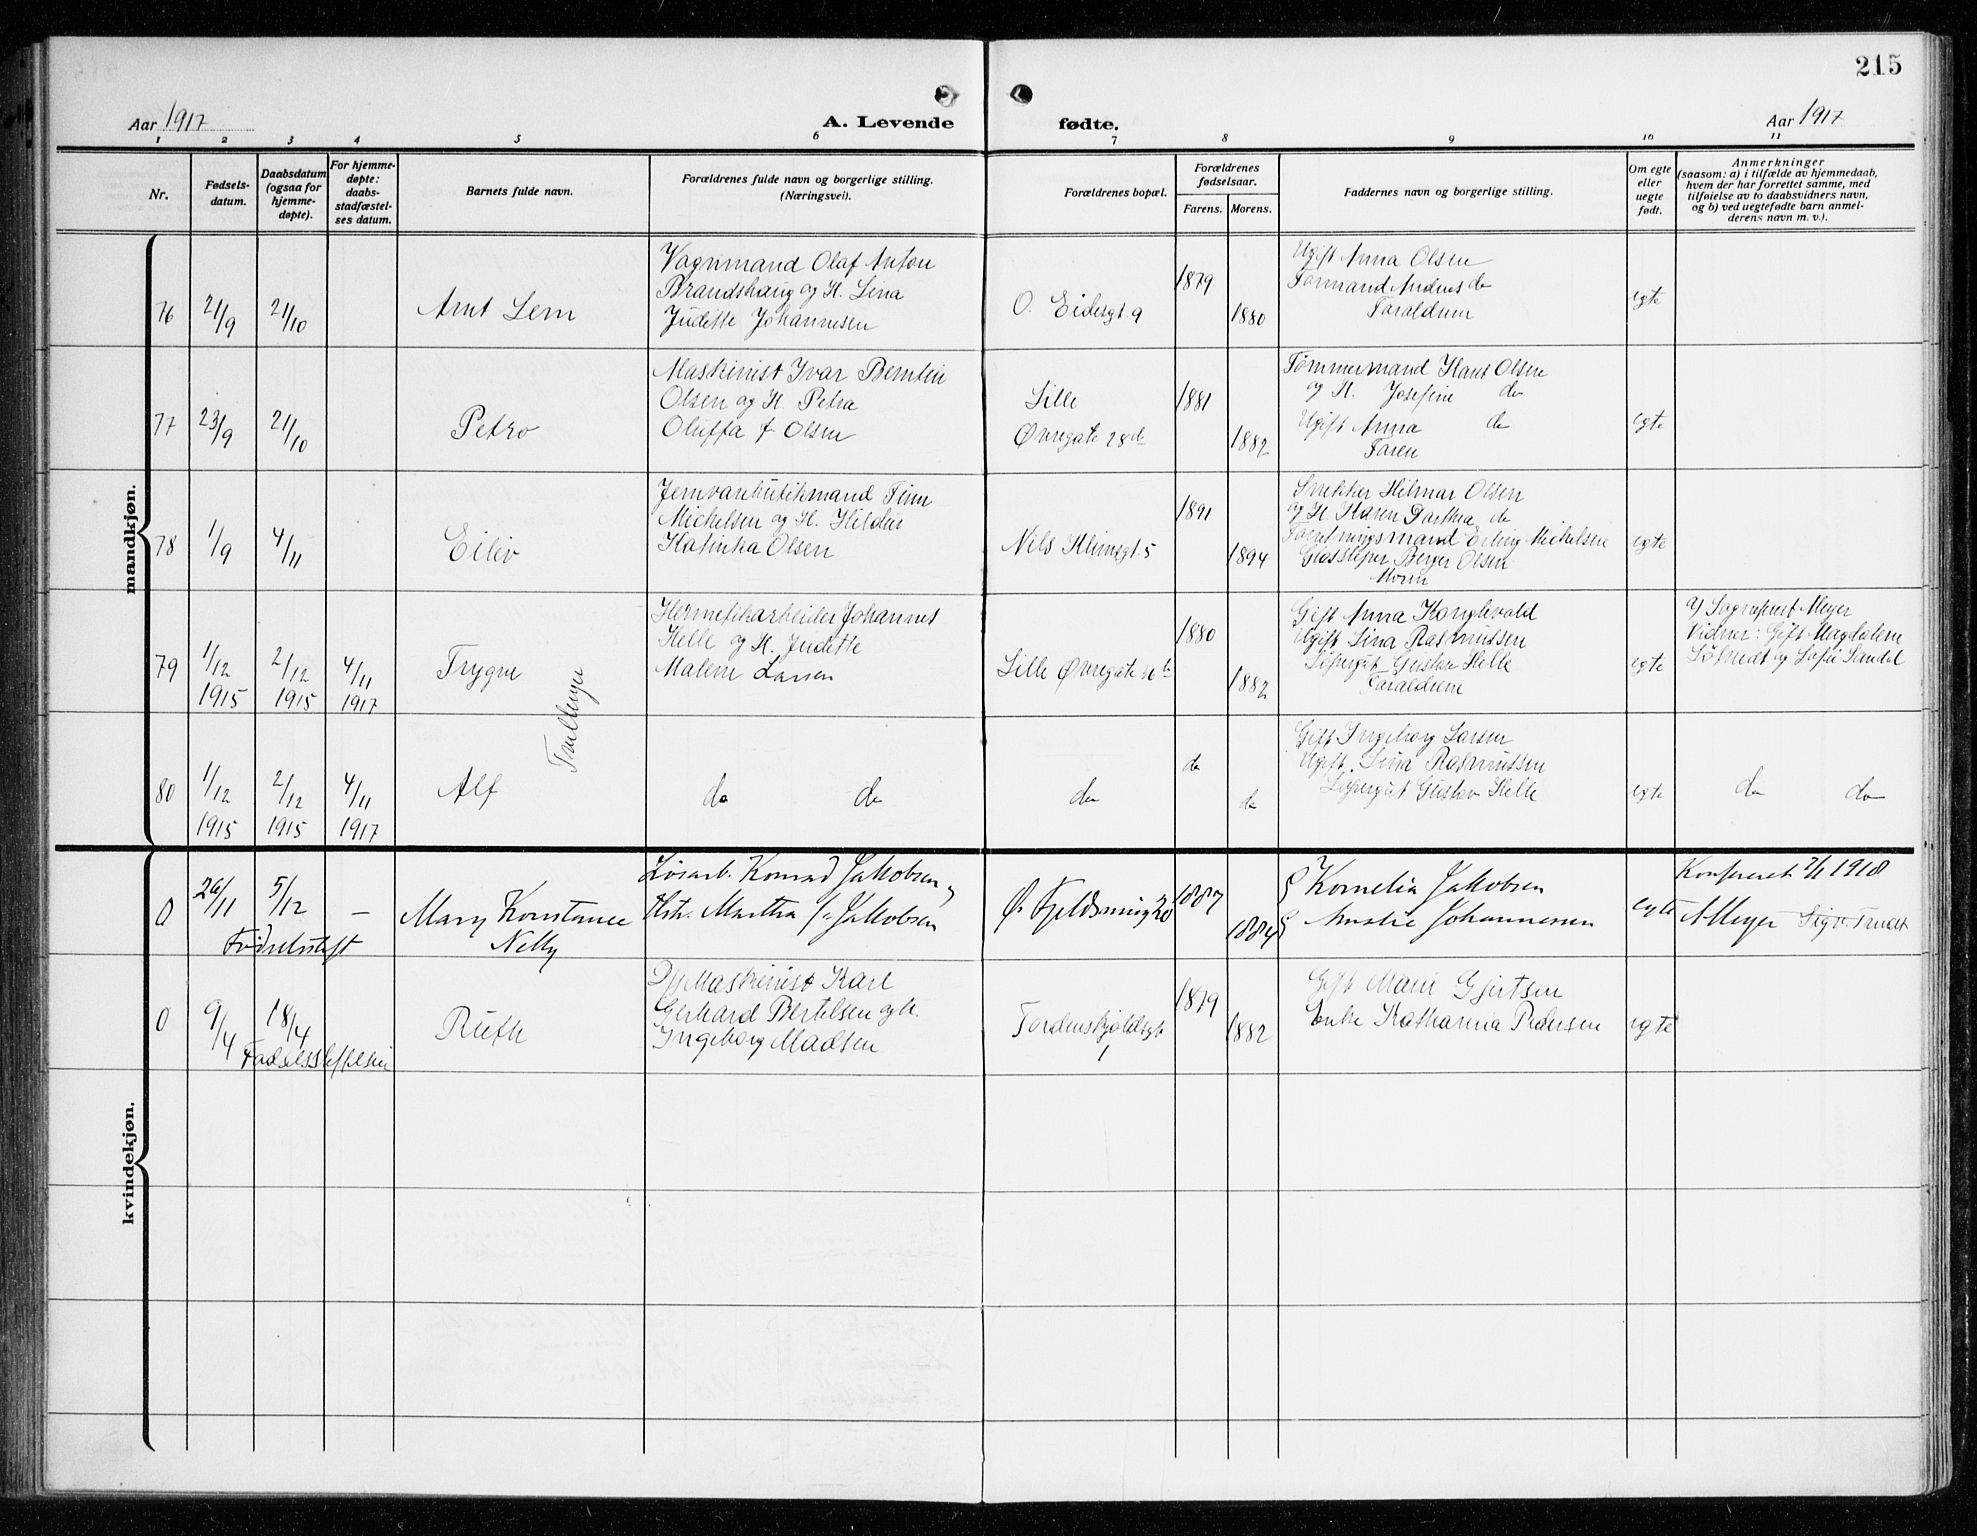 215
Aar 1917
A. Levende
fødte.
Aar 1917
1 2 3 4 5 6 7 8 9 10 11
Nr.
Fødsels-
datum.
Daabsdatum
(ogsaa for
hjemme-
døpte).
For hjemme-
døpte:
daabs-
stadfæstel-
ses datum.
Barnets fulde navn.
Forældrenes fulde navn og borgerlige stilling.
(Næringsvei).
Forældrenes bopæl.
Forældrenes
fødselsaar.
Farens. Morens.
Faddernes navn og borgerlige stilling.
Om egte
eller
uegte
født.
Anmerkninger
(saasom: a) i tilfælde av hjemmedaab,
hvem der har forrettet samme, med
tilføielse av to daabsvidners navn,
og b) ved uegtefødte barn anmel-
derens navn m. v.).
mandkjøn.
76
21/9
21/10
Arnt Lem
Vognmand Olaf Anton
Brandshaug og H. Lina
Juditte Johannesen
O. Eidesgt. 9
1879
1880
Ugift Anna Olsen
Formand Anders do
Foraldrene
egte
77
23/9
21/10
Petro
Maskinist Ivar Berntin
Olsen og H. Petra
Oluffa f Olsen
Lille
Øvregate 28d
1881
1882
Tømmermand Hans Olsen
og H. Josefine do
Ugift Anna do
Faren
egte
78
1/9
4/11
Eiliv
Michelsen og H. Hildur
Katinka Olsen
Nils Klimsgt 5
1891
1894
Snekker Hilmar Olsen
og H. Karen Dorthea do
Forretningsmand Erling Michelsen
Glassliper Berger Olsen
Moren
egte
79
1/12
1915
2/12
1915
4/11
1917
Trygve
Trillinger
Hermetikarbeider Johannes
Helle og H. Juditte
Malene Larsen
Lille Øvregate
1880
1882
Gift Anna Konghvald
Ugift Lina Rasmussen
Løpergut Gustav Helle
Foraldrene
egte
a) Sogneprest Meyer
Vidner: Gift Magdalene
og Sofie Sandal
80
1/12
1915
2/12
1915
4/11
1917
Alf
do do
do
do
do
Gift Ingeborg Larsen
Ugift Lina Rasmussen
Løpergut Gustav Helle
egte
do do
kvindekjøn.
0
26/11
5/12
–
Fødselsstift
Mary Konstance
Nelly
Løsarb. Konrad Jakobsen og
Hstr. Martha f. Jakobsen
Ø. Fjeldsmug 20
1887
1884
Kornelia Jakobsen
Amalie Johannessen
egte
Konfereret 2/1 1918
AMeyer
0
9/4
18/4
Fødselsstiftelsen
Ruth
Maskinist Karl
Gerhard Bertelsen og h.
Ingeborg Madsen
Tordenskjoldsgt
1
1879
1882
Gift Marie Gjertsen
Enke Katharina Pedersen
egte